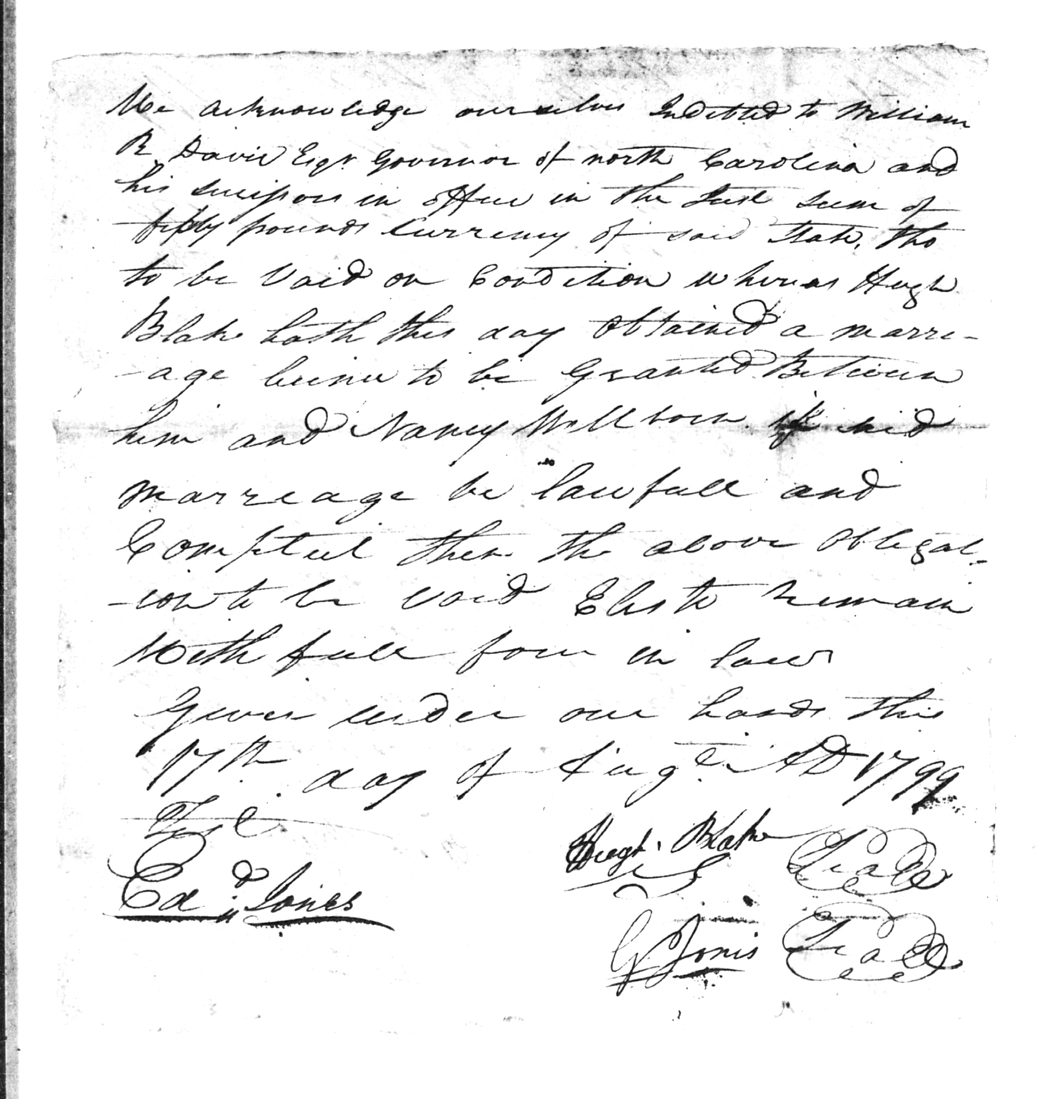 We acknowledge ourselves Indebted to William
R Davie Esqr Governor of north Carolina and
his Sucessors in office in the Just Sum of
fifty pounds Currency of said State, tho
to be Void on Condition whereas Hugh
Blake hath this day Obtained a marri-
-age licince to be Granted Between
him and Nancy Wellborn if said
marreage be lawfull and
Compleet then the above Obligat-
-ion to be Void Else to Remain
With full force in law
Given under our hands this
17th day of Augt AD 1799
Test
Edd Jones
Hugh Blake Seal
G Jones Seal